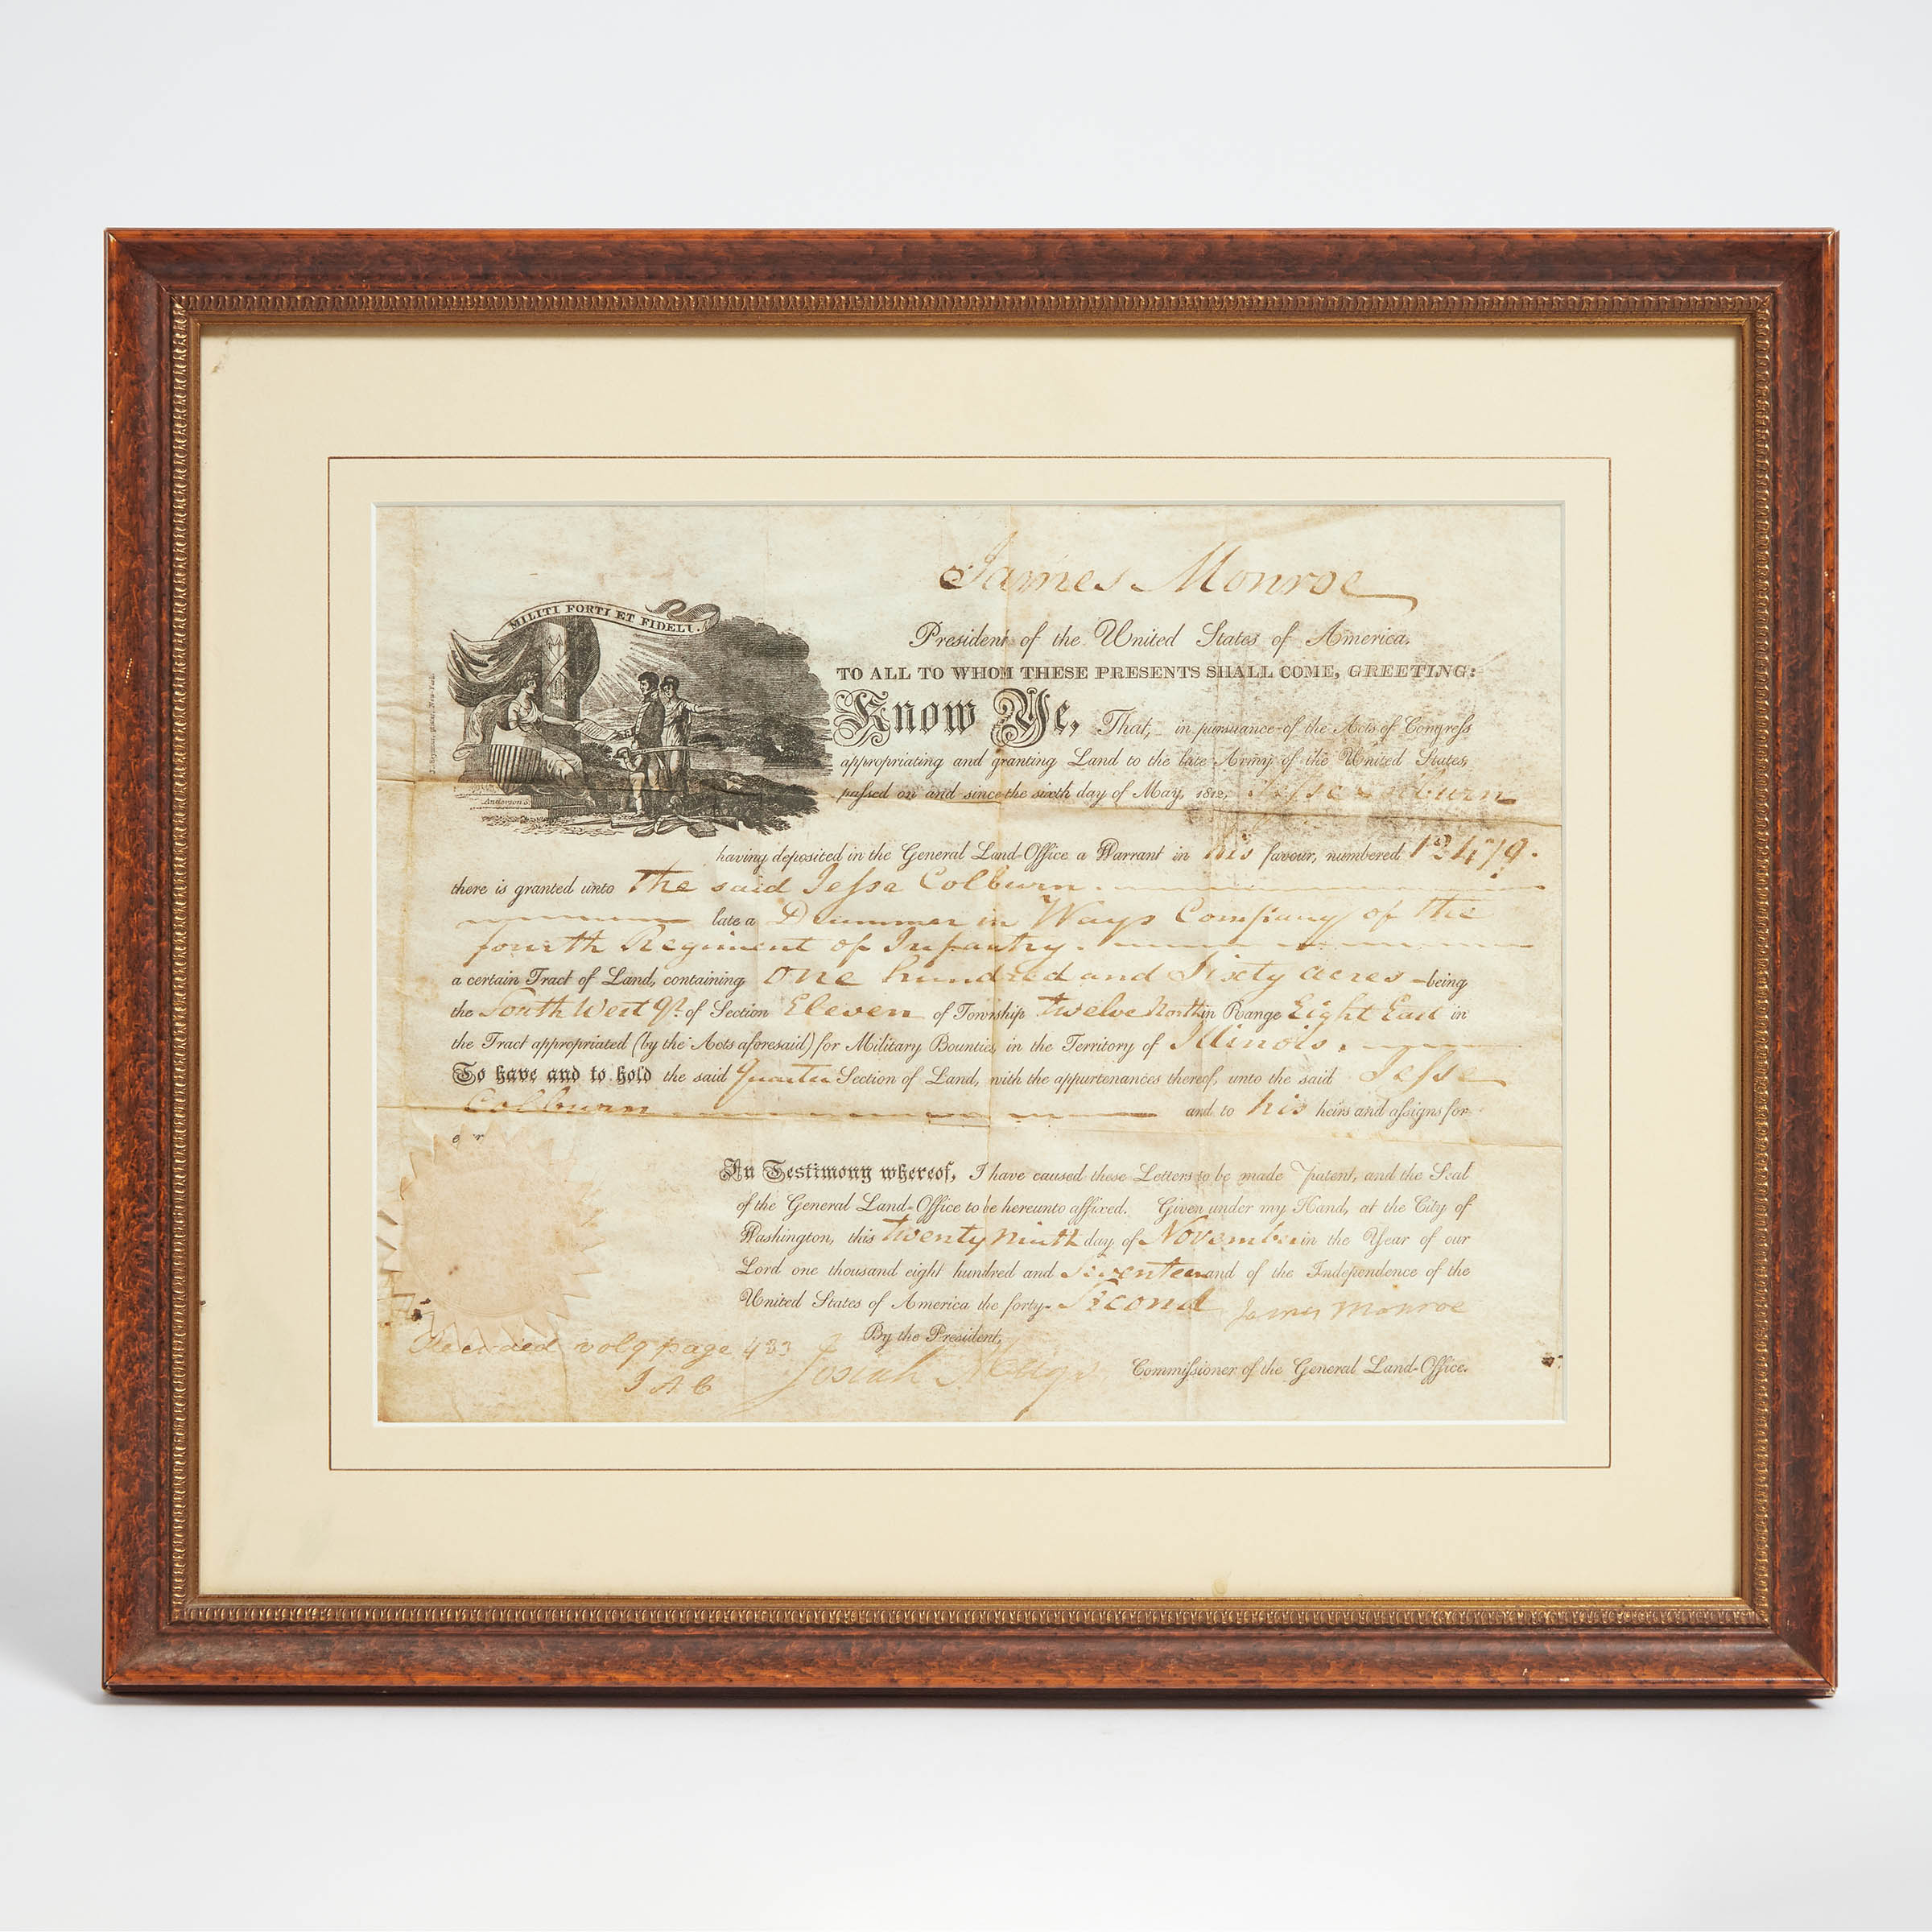 James Monroe
MILITI FORTI ET FIDELI.
President of the United States of America.
TO ALL TO WHOM THESE PRESENTS SHALL COME, GREETING:
Know Ye, That, in pursuance of the Acts of Congreſs
appropriating and granting Land to the late Army of the United States,
paſsed on and since the sixth day of May, 1812, Jeſse Colburn
Anderson S.
having deposited in the General Land-Office a Warrant in his favour, numbered
there is granted unto The said Jeſse Colburn.
late a Drummer in Ways Company of the
fourth Regiment of Infantry.
a certain Tract of Land, containing One hundred and Sixty acres being
the South West Qr. of Section Eleven of Township twelve North in Range Eight East in
the Tract appropriated (by the Acts aforesaid) for Military Bounties, in the Territory of Illinois.
To have and to hold the said Quarter Section of Land, with the appurtenances thereof, unto the said Jeſse
Colburn and to his heirs and aſsigns for
In Testimony whereof, I have caused these Letters to be made Patent, and the Seal
of the General Land-Office to be hereunto affixed. Given under my Hand, at the City of
Washington, this twenty ninth day of November in the Year of our
Lord one thousand eight hundred and Seventeen and of the Independence of the
United States of America the forty-Second James Monroe
By the President,
Recorded vol 9 page 483 Josiah Meigs Commiſsioner of the General Land-Office.